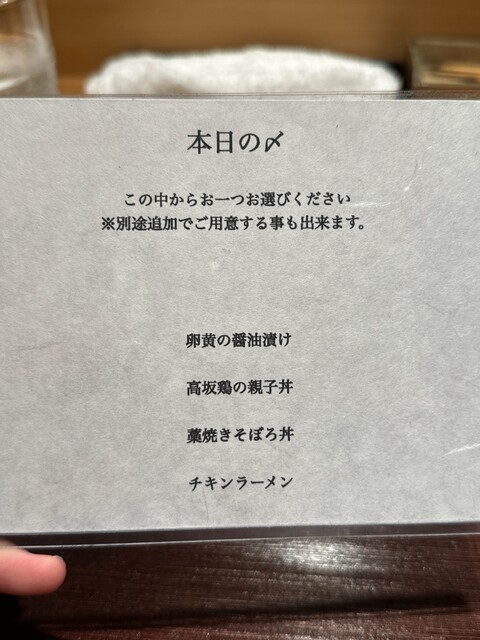 本日の〆
この中からお一つお選びください
※別途追加でご用意する事も出来ます。
卵黄の醤油漬け
高坂鶏の親子丼
藁焼きそぼろ丼
チキンラーメン